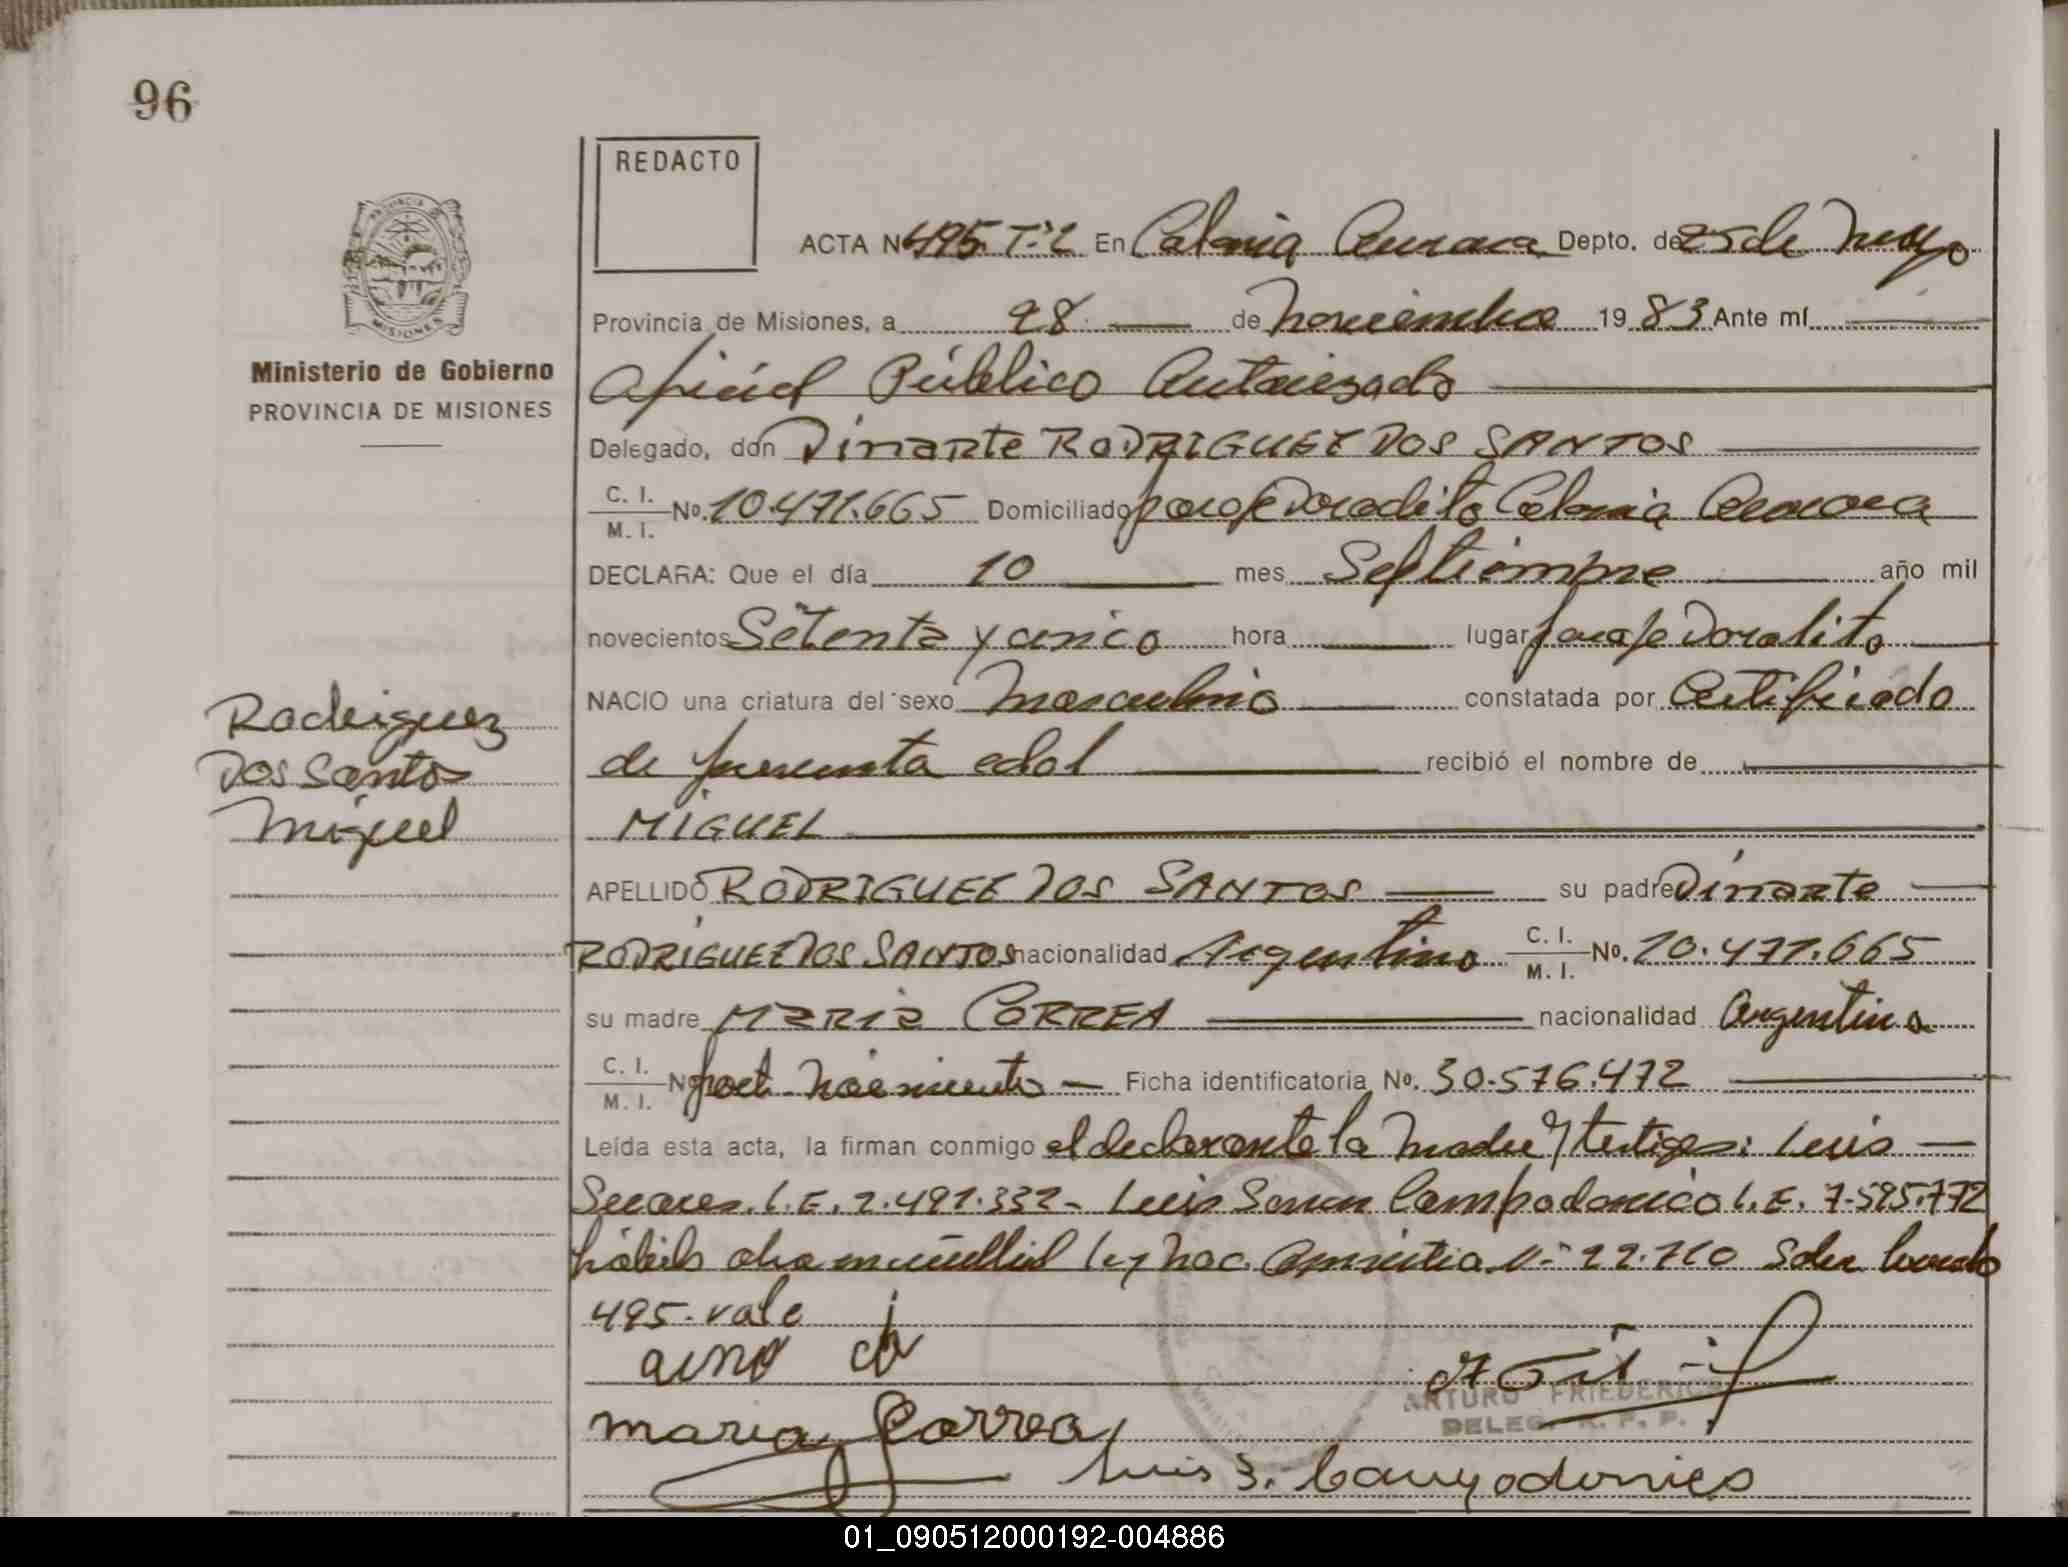 96
REDACTO
PROVINCIA DE
MISIONES
Ministerio de Gobierno
PROVINCIA DE MISIONES
ACTA Nº 495. T:2 En Colonia Aurora Depto. de 25 de Mayo
Provincia de Misiones, a 28 de Noviembre 1983 Ante mí
Oficial Público Autorizado
Delegado, don Dinarte RODRIGUEZ DOS SANTOS
C. I.
M. I. No. 10.471.665 Domiciliado paraje Doradito Colonia Aurora
DECLARA: Que el día 10 mes Septiembre año mil
novecientos Setenta y cinco hora lugar paraje Doradito
NACIO una criatura del sexo Masculino constatada por Certificado
de presunta edad recibió el nombre de
Rodriguez
Dos Santos
Miguel
MIGUEL
APELLIDO RODRIGUEZ DOS SANTOS su padre Dinarte
RODRIGUEZ DOS SANTOS nacionalidad Argentino C. I.
M. I. No. 10.471.665
su madre MARIA CORREA nacionalidad Argentina
C. I.
M. I. No part. Nacimiento Ficha identificatoria No. 30.576.472
Leída esta acta, la firman conmigo el declarante la Madre y testigos: Luis
L.E. 2.491.332- Luis Campodonico L.E. 7.595.772
hábiles ley Nac. Amnistia Nº 22.710 Sobre
495. vale
Maria Correa
ARTURO FRIEDERICH
DELEG. R. P. P.
Luis S. Campodonico
01_090512000192-004886